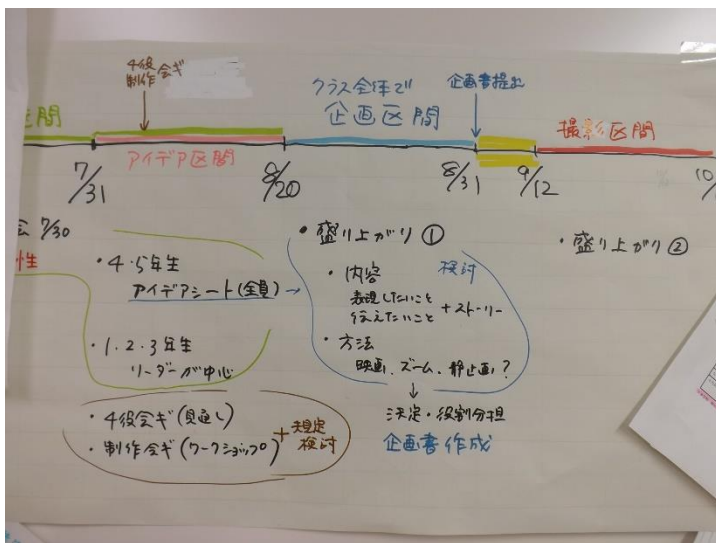 4役
制作会ギ
クラス全体で
企画区間
企画書提出
間
アイデア区間
撮影区間
7/31
8/20
8/31
9/12
10/
会 7/30
性
・4・5年生
アイデアシート(全員)→
・1.2.3年生
リーダーが中心
・4役会ギ(見通し)
・制作会ギ(ワークショップ)
+規定
検討
・盛り上がり①
・内容
検討
表現したいこと
伝えたいこと
+ストーリー
・方法
映画、ズーム、静止画?
↓
決定・役割分担
企画書作成
・盛り上がり②